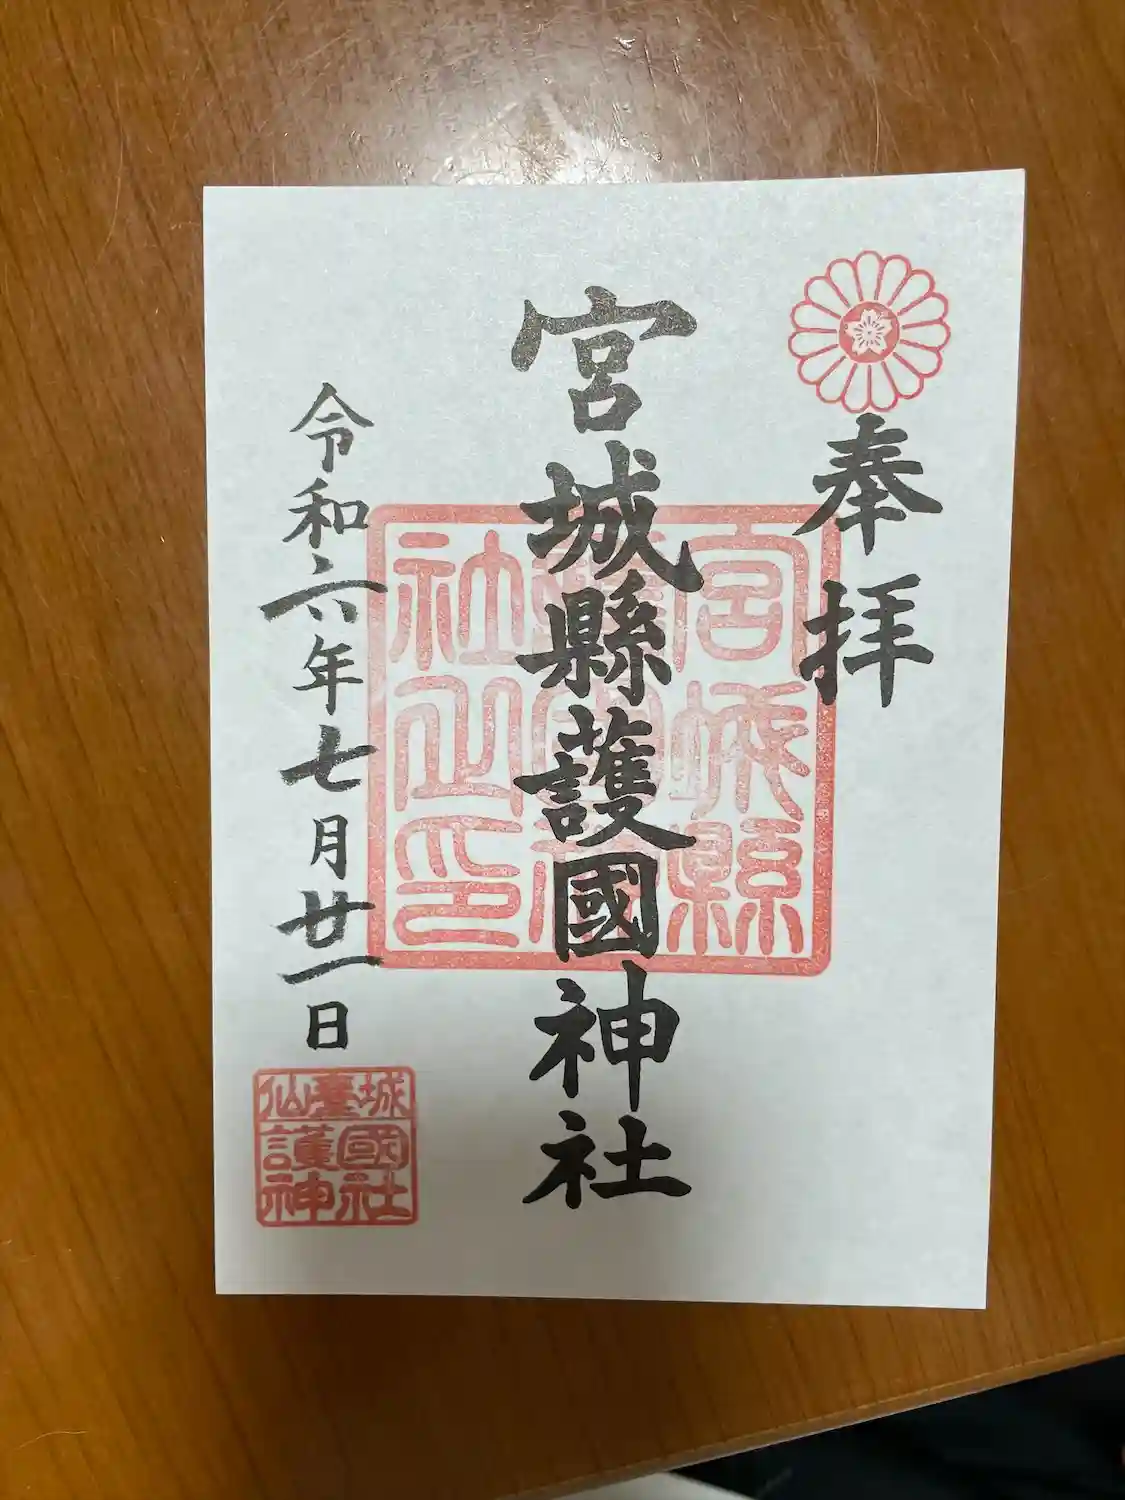 奉拝
宮城縣護國神社
令和六年七月廿一日
宮城縣
社之印
仙臺城
護國
神社